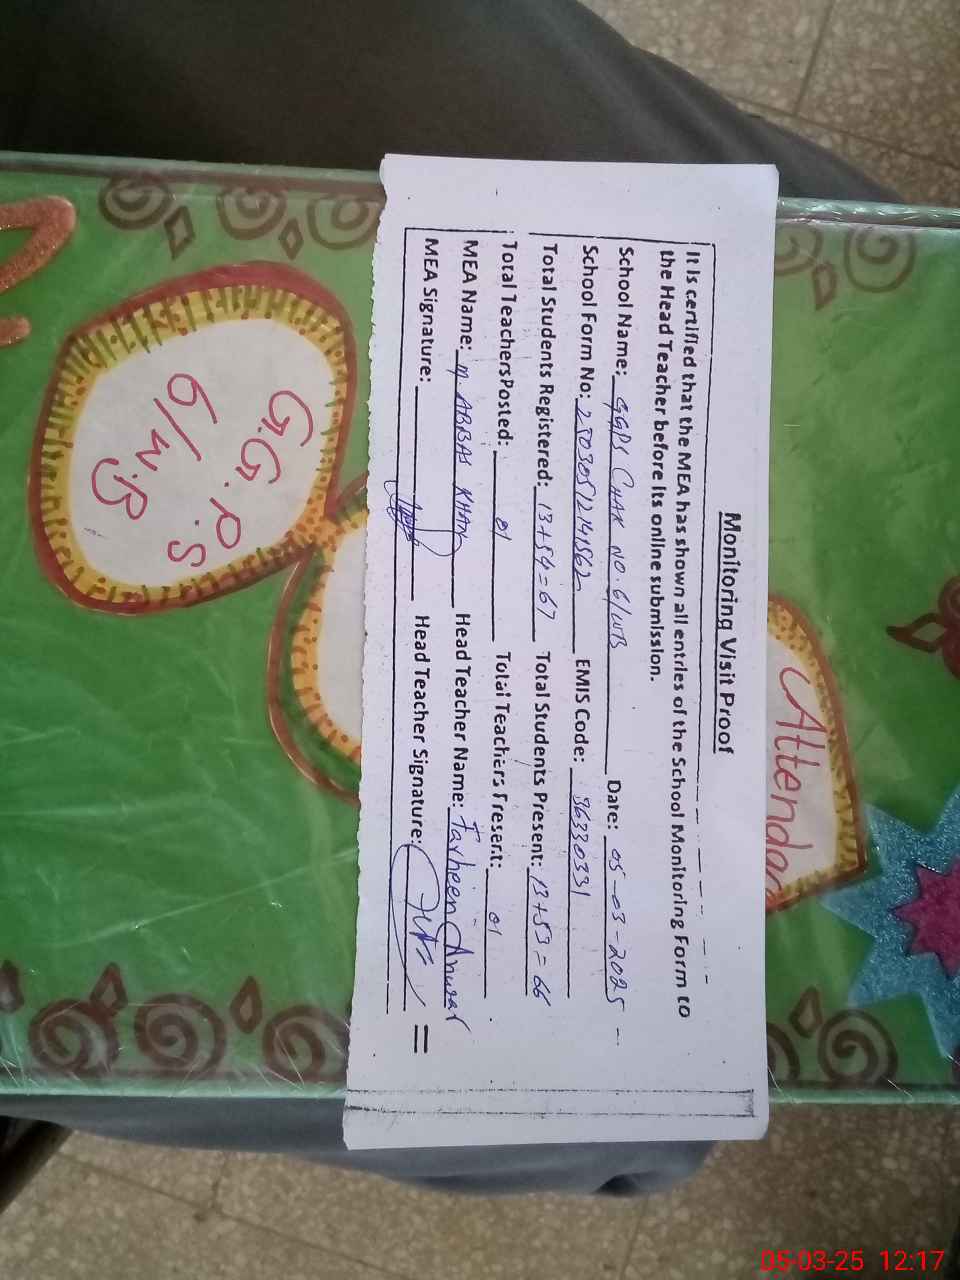 Monitoring Visit Proof
It is certified that the MEA has shown all entries of the School Monitoring Form to
the Head Teacher before its online submission.
School Name: GGPS CHAK NO. 6/WB Date: 05-03-2025
School Form No: 2503051214562 EMIS Code: 36330331
Total Students Registered: 13+54=67 Total Students Present: 13+53=66
Total Teachers Posted: 01 Total Teachers Present: 01
MEA Name: M. ABBAS KHAN Head Teacher Name: Farheen Anwar
MEA Signature: Head Teacher Signature:
G.G.P.S
6/W.B
Attendan
05-03-25 12:17